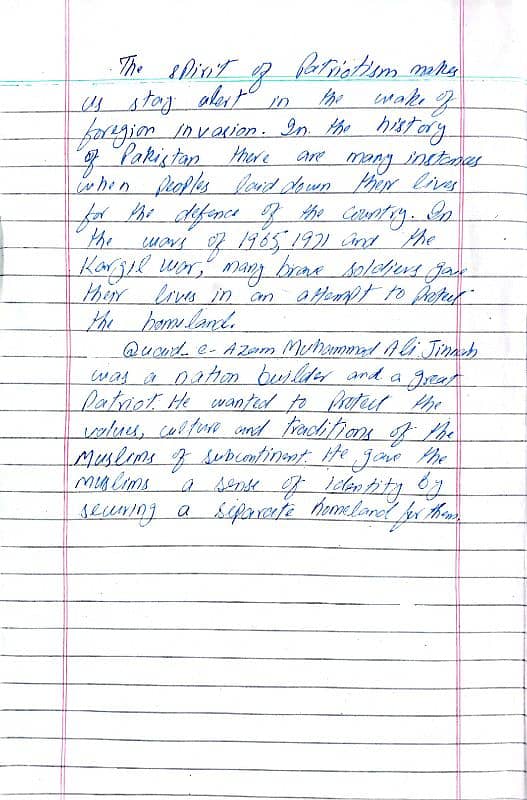 The spirit of Patriotism makes
us stay alert in the wake of
foregion invasion. In the history
of Pakistan there are many instances
when peoples laid down their lives
for the defence of the country. In
the wars of 1965, 1971 and the
Kargil war, many brave soldiers gave
their lives in an attempt to protect
the homeland.
Quaid_e-Azam Muhammad Ali Jinnah
was a nation builder and a great
Patriot. He wanted to protect the
values, culture and traditions of the
Muslims of subcontinent. He gave the
muslims a sense of identity by
securing a separate homeland for them.